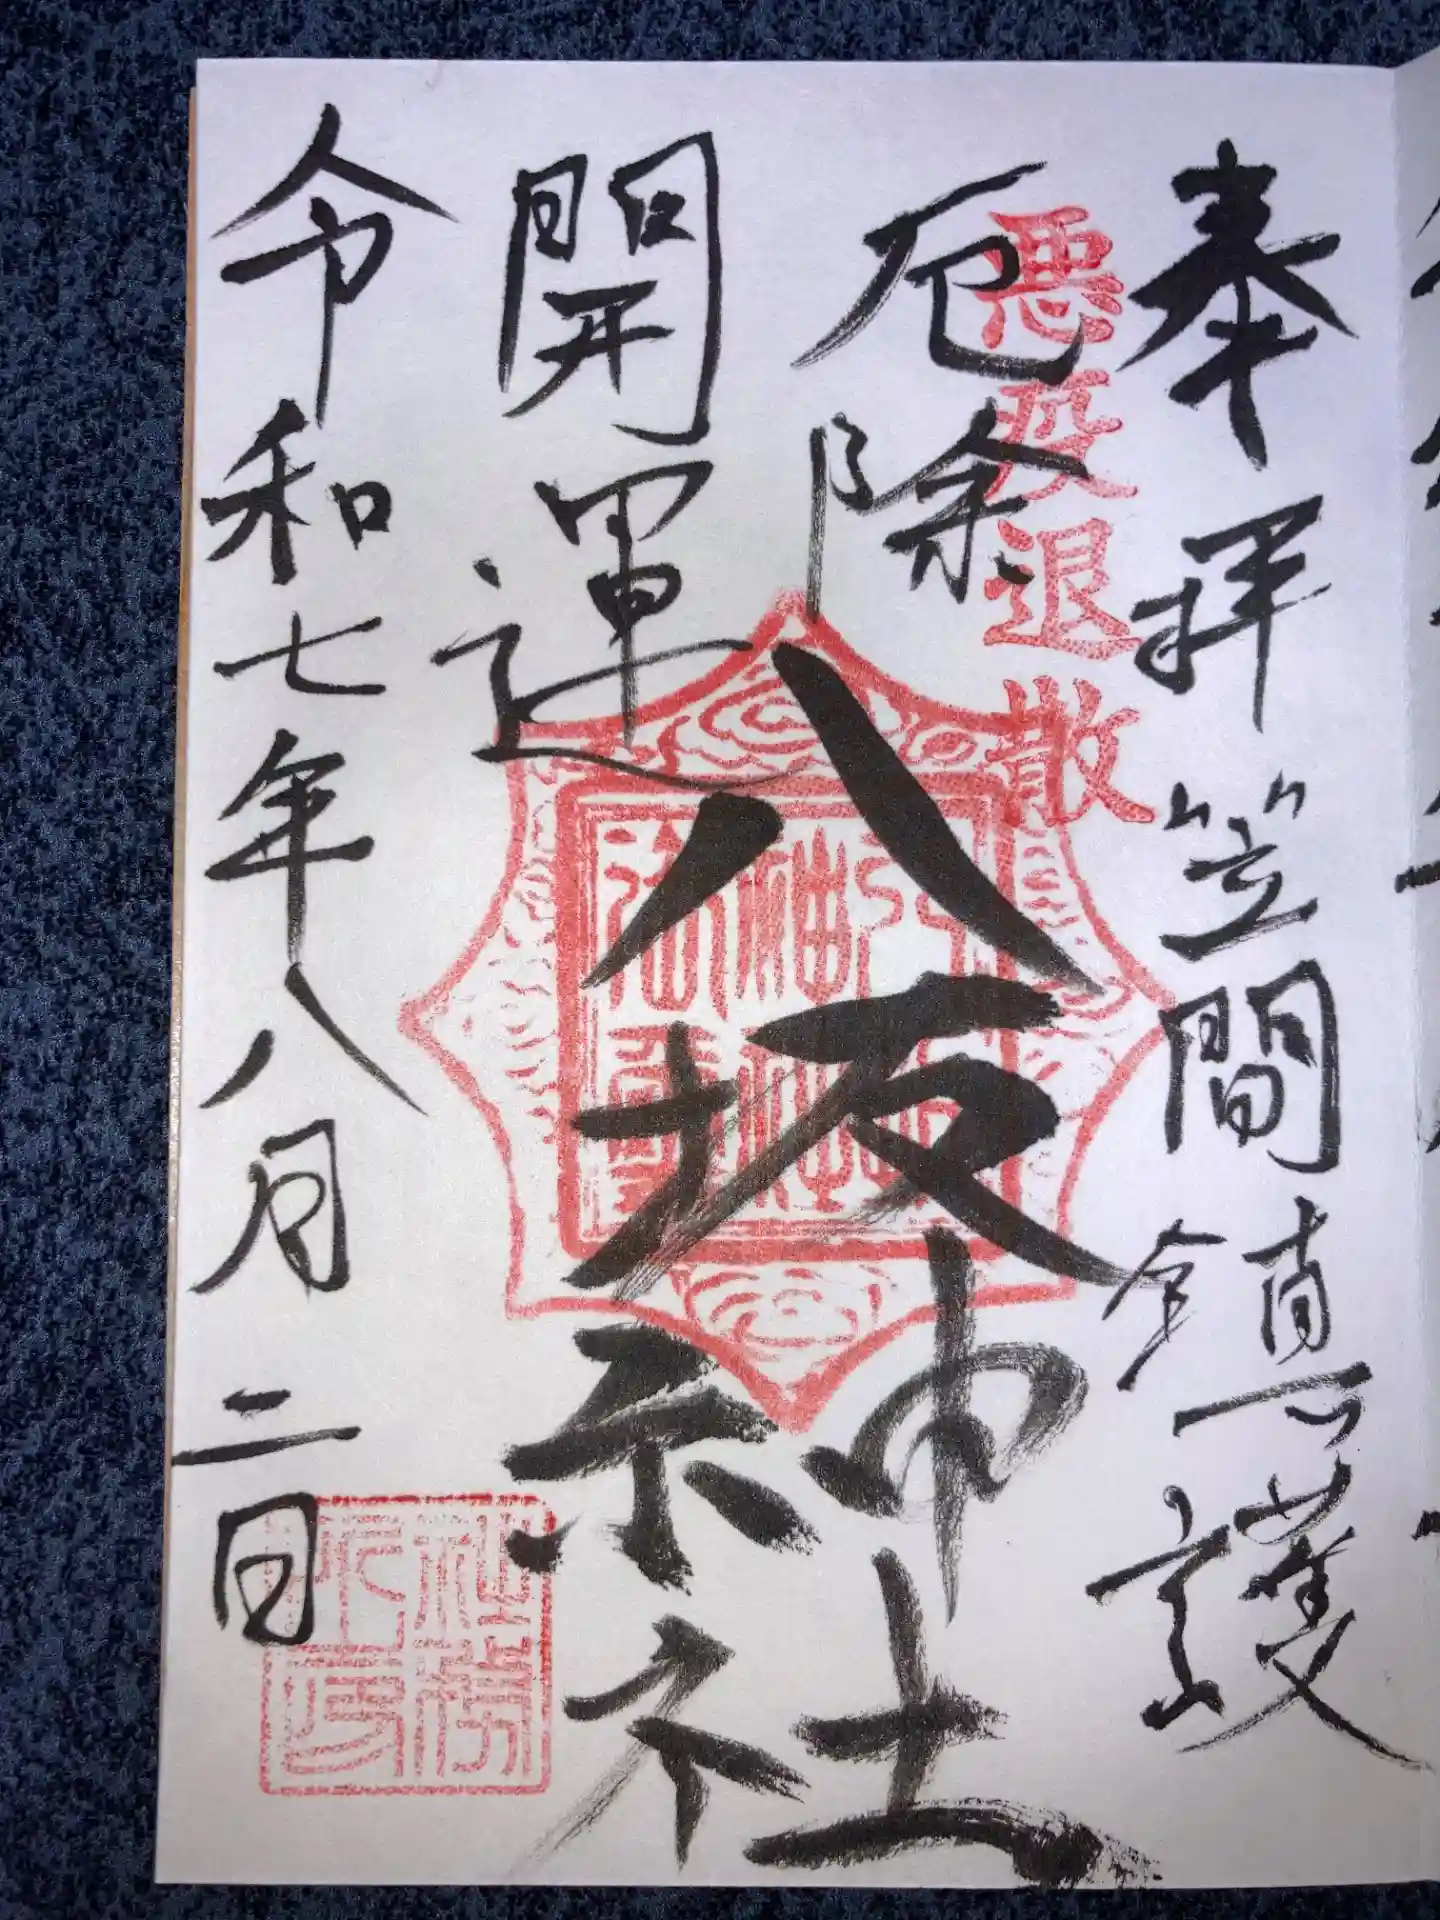 奉拝 笠間鎮護
悪疫退散
厄除
開運
八坂神社
令和七年八月二日